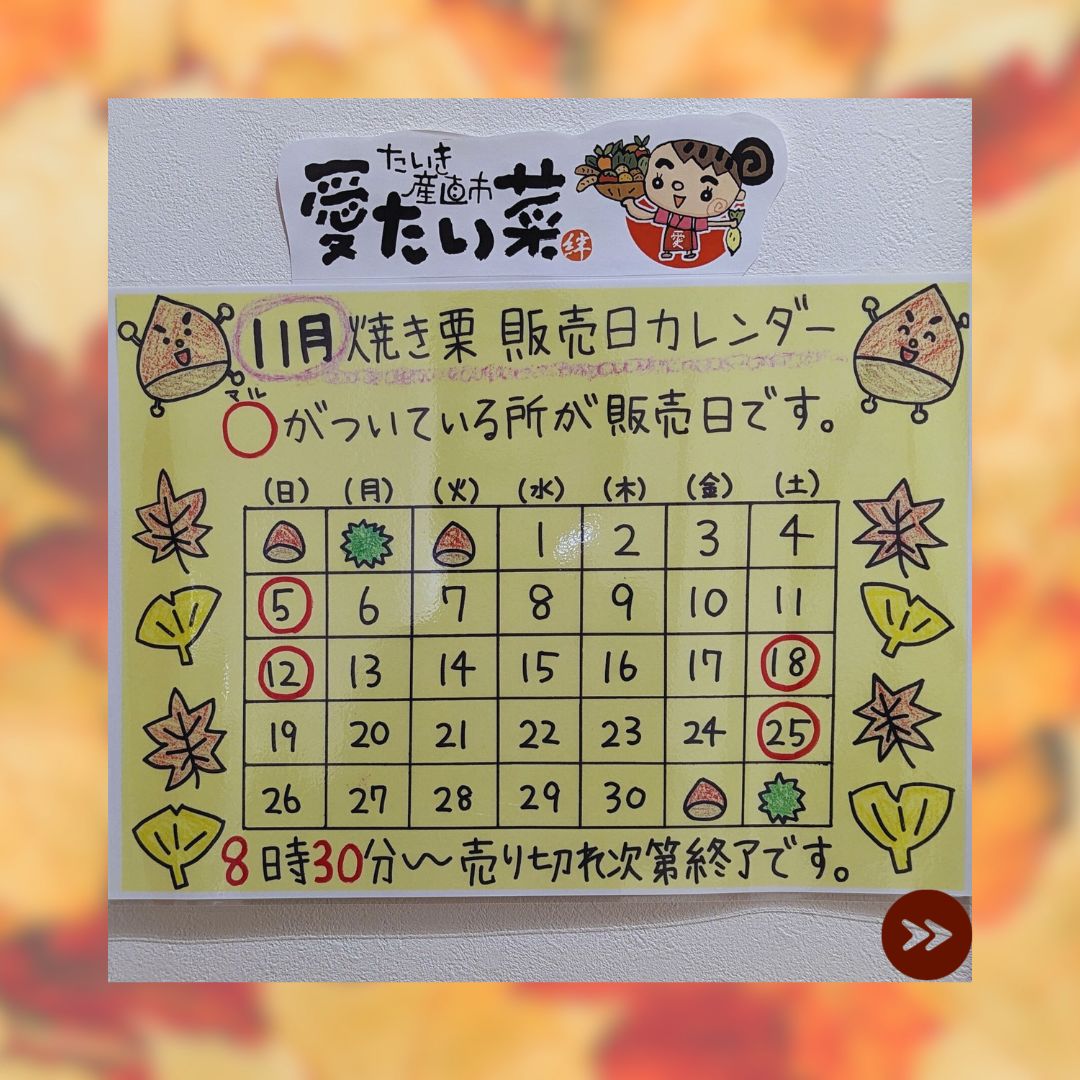 たいき
産直市
愛たい菜
絆
愛
11月焼き栗 販売日カレンダー
マル
○がついている所が販売日です。
(日) (月) (火) (水) (木) (金) (土)
1 2 3 4
5 6 7 8 9 10 11
12 13 14 15 16 17 18
19 20 21 22 23 24 25
26 27 28 29 30
8時30分〜売り切れ次第終了です。